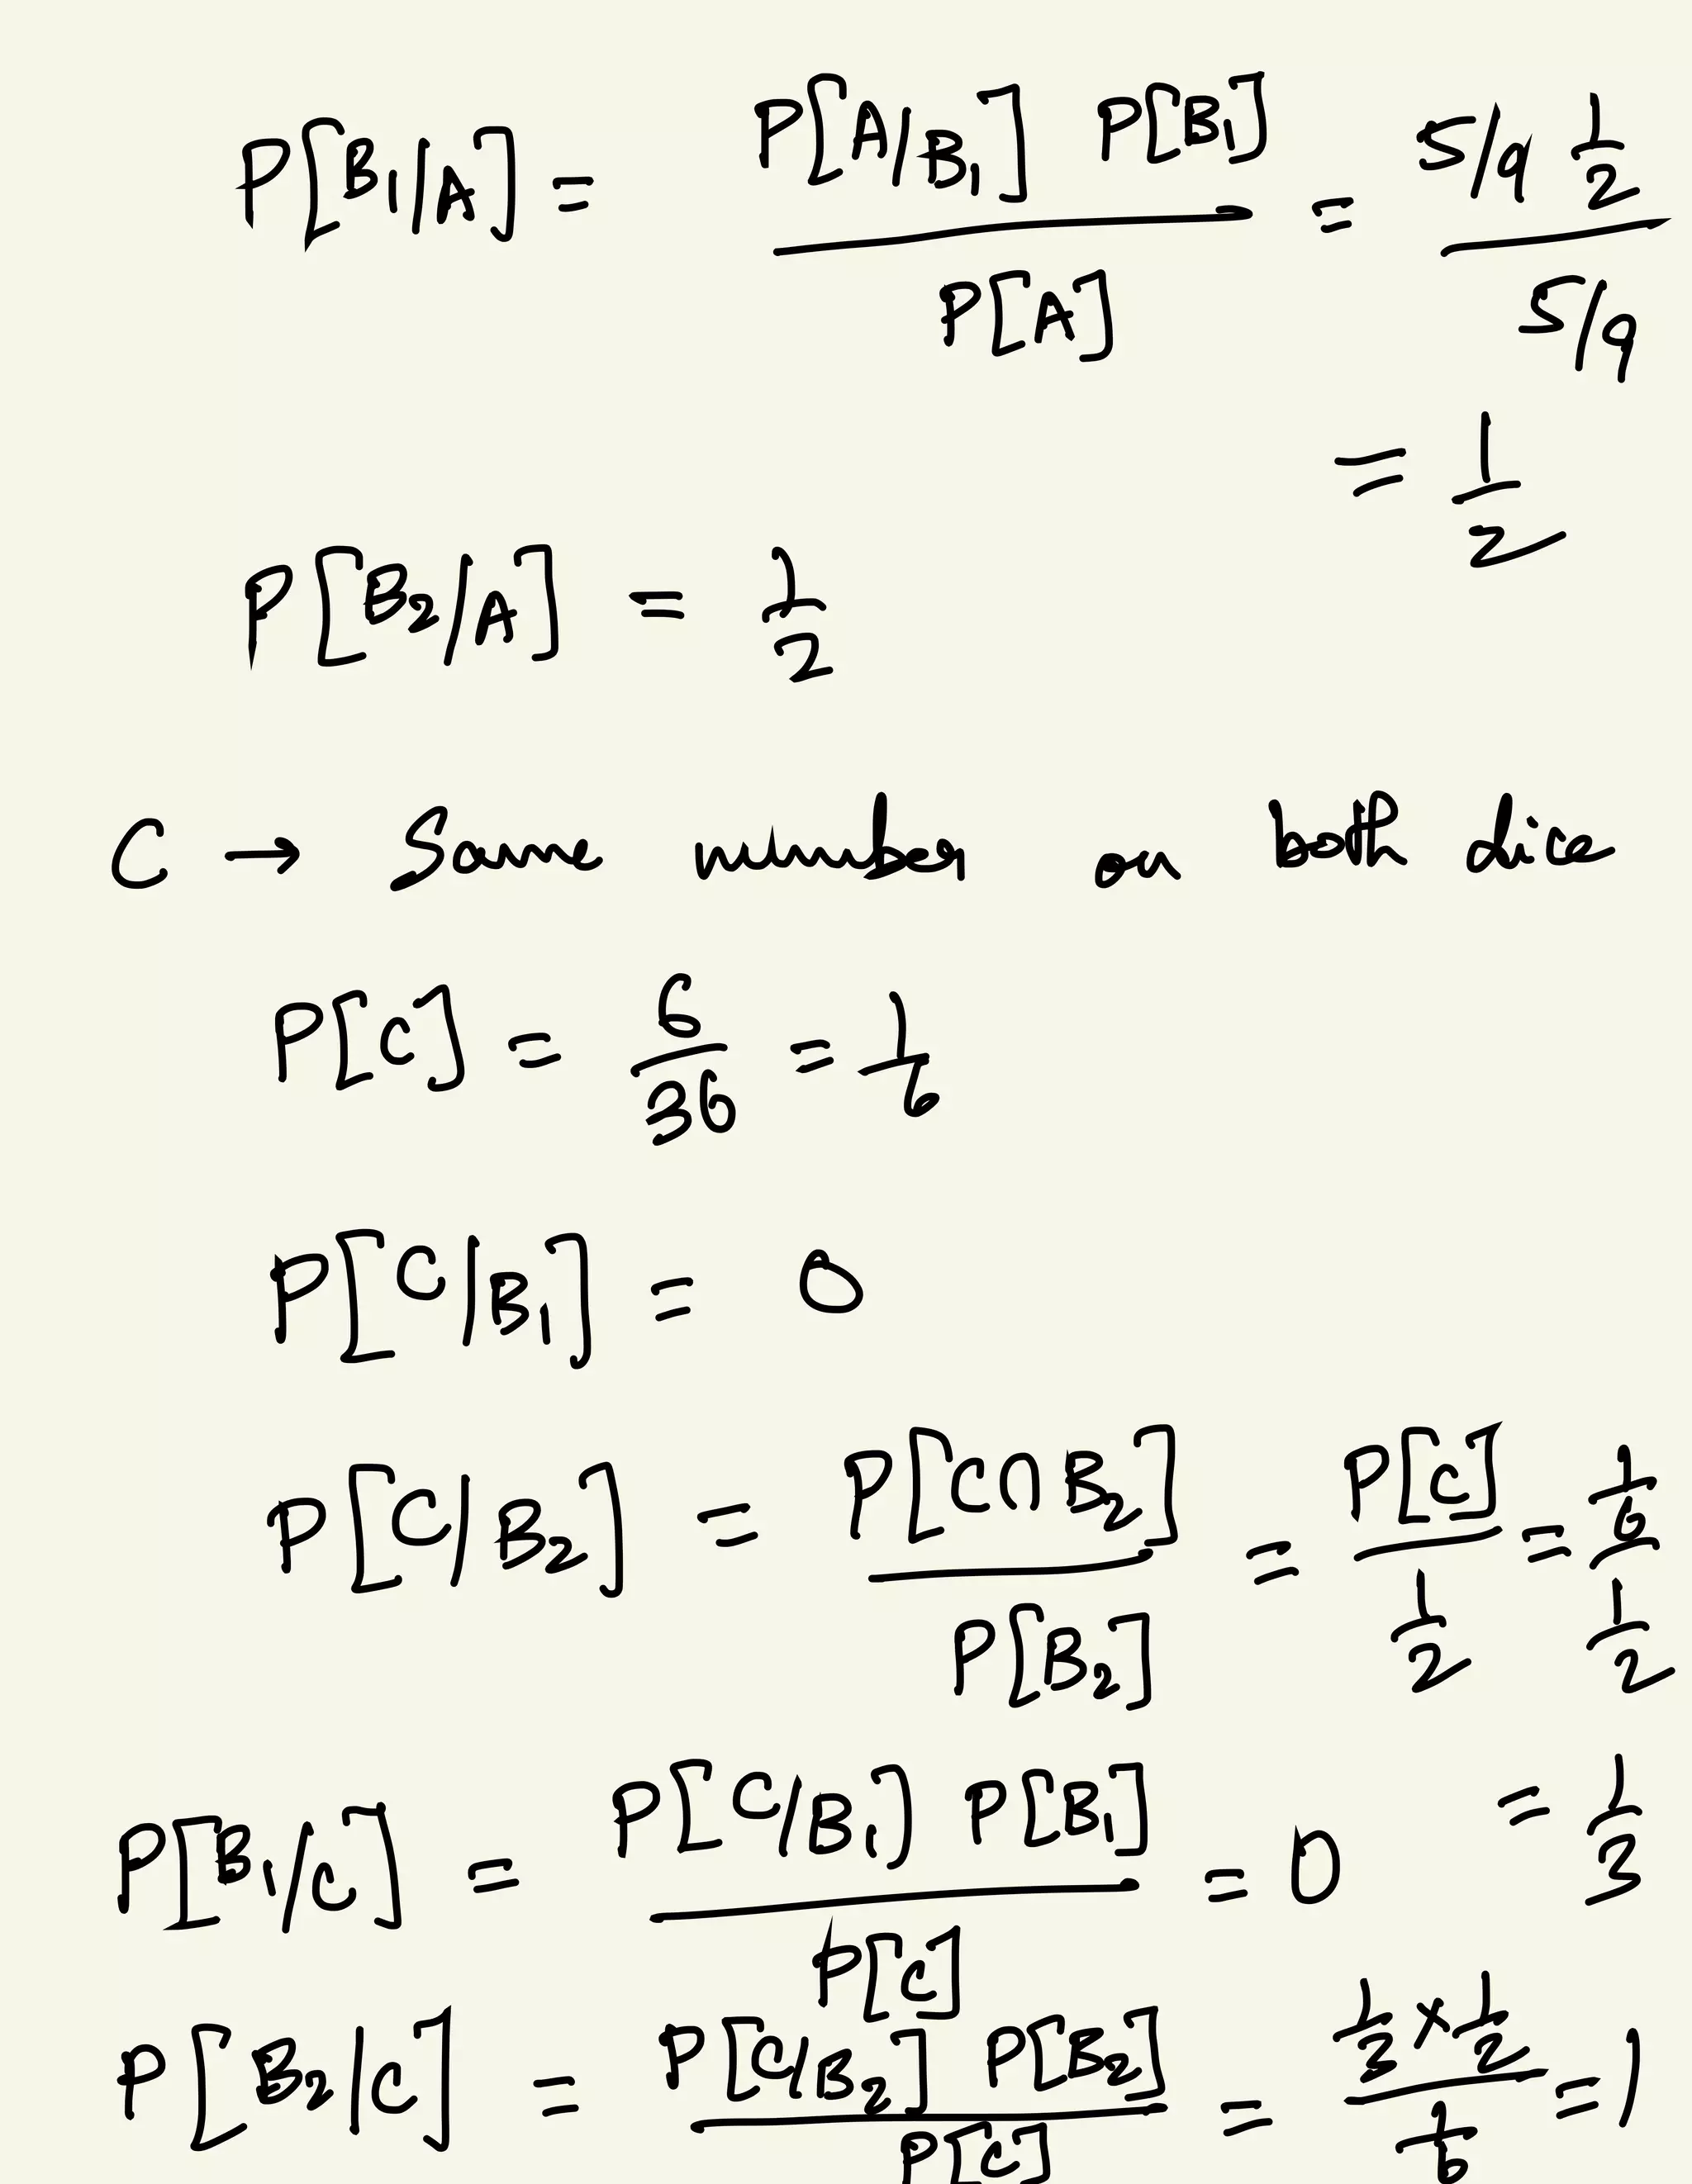 P[B₁/A] = P[A/B₁] P[B₁] / P[A] = 5/9 1/2 / 5/9
= 1/2
P[B₂/A] = 1/2
C → Same number on both dice
P[C] = 6/36 = 1/6
P[C/B₁] = 0
P[C/B₂] = P[C∩B₂] / P[B₂] = P[C] / 1/2 = 1/6 / 1/2
= 1/3
P[B₁/C] = P[C/B₁] P[B₁] / P[C] = 0
P[B₂|C] = P[C/B₂] P[B₂] / P[C] = 1/3 × 1/2 / 1/6 = 1